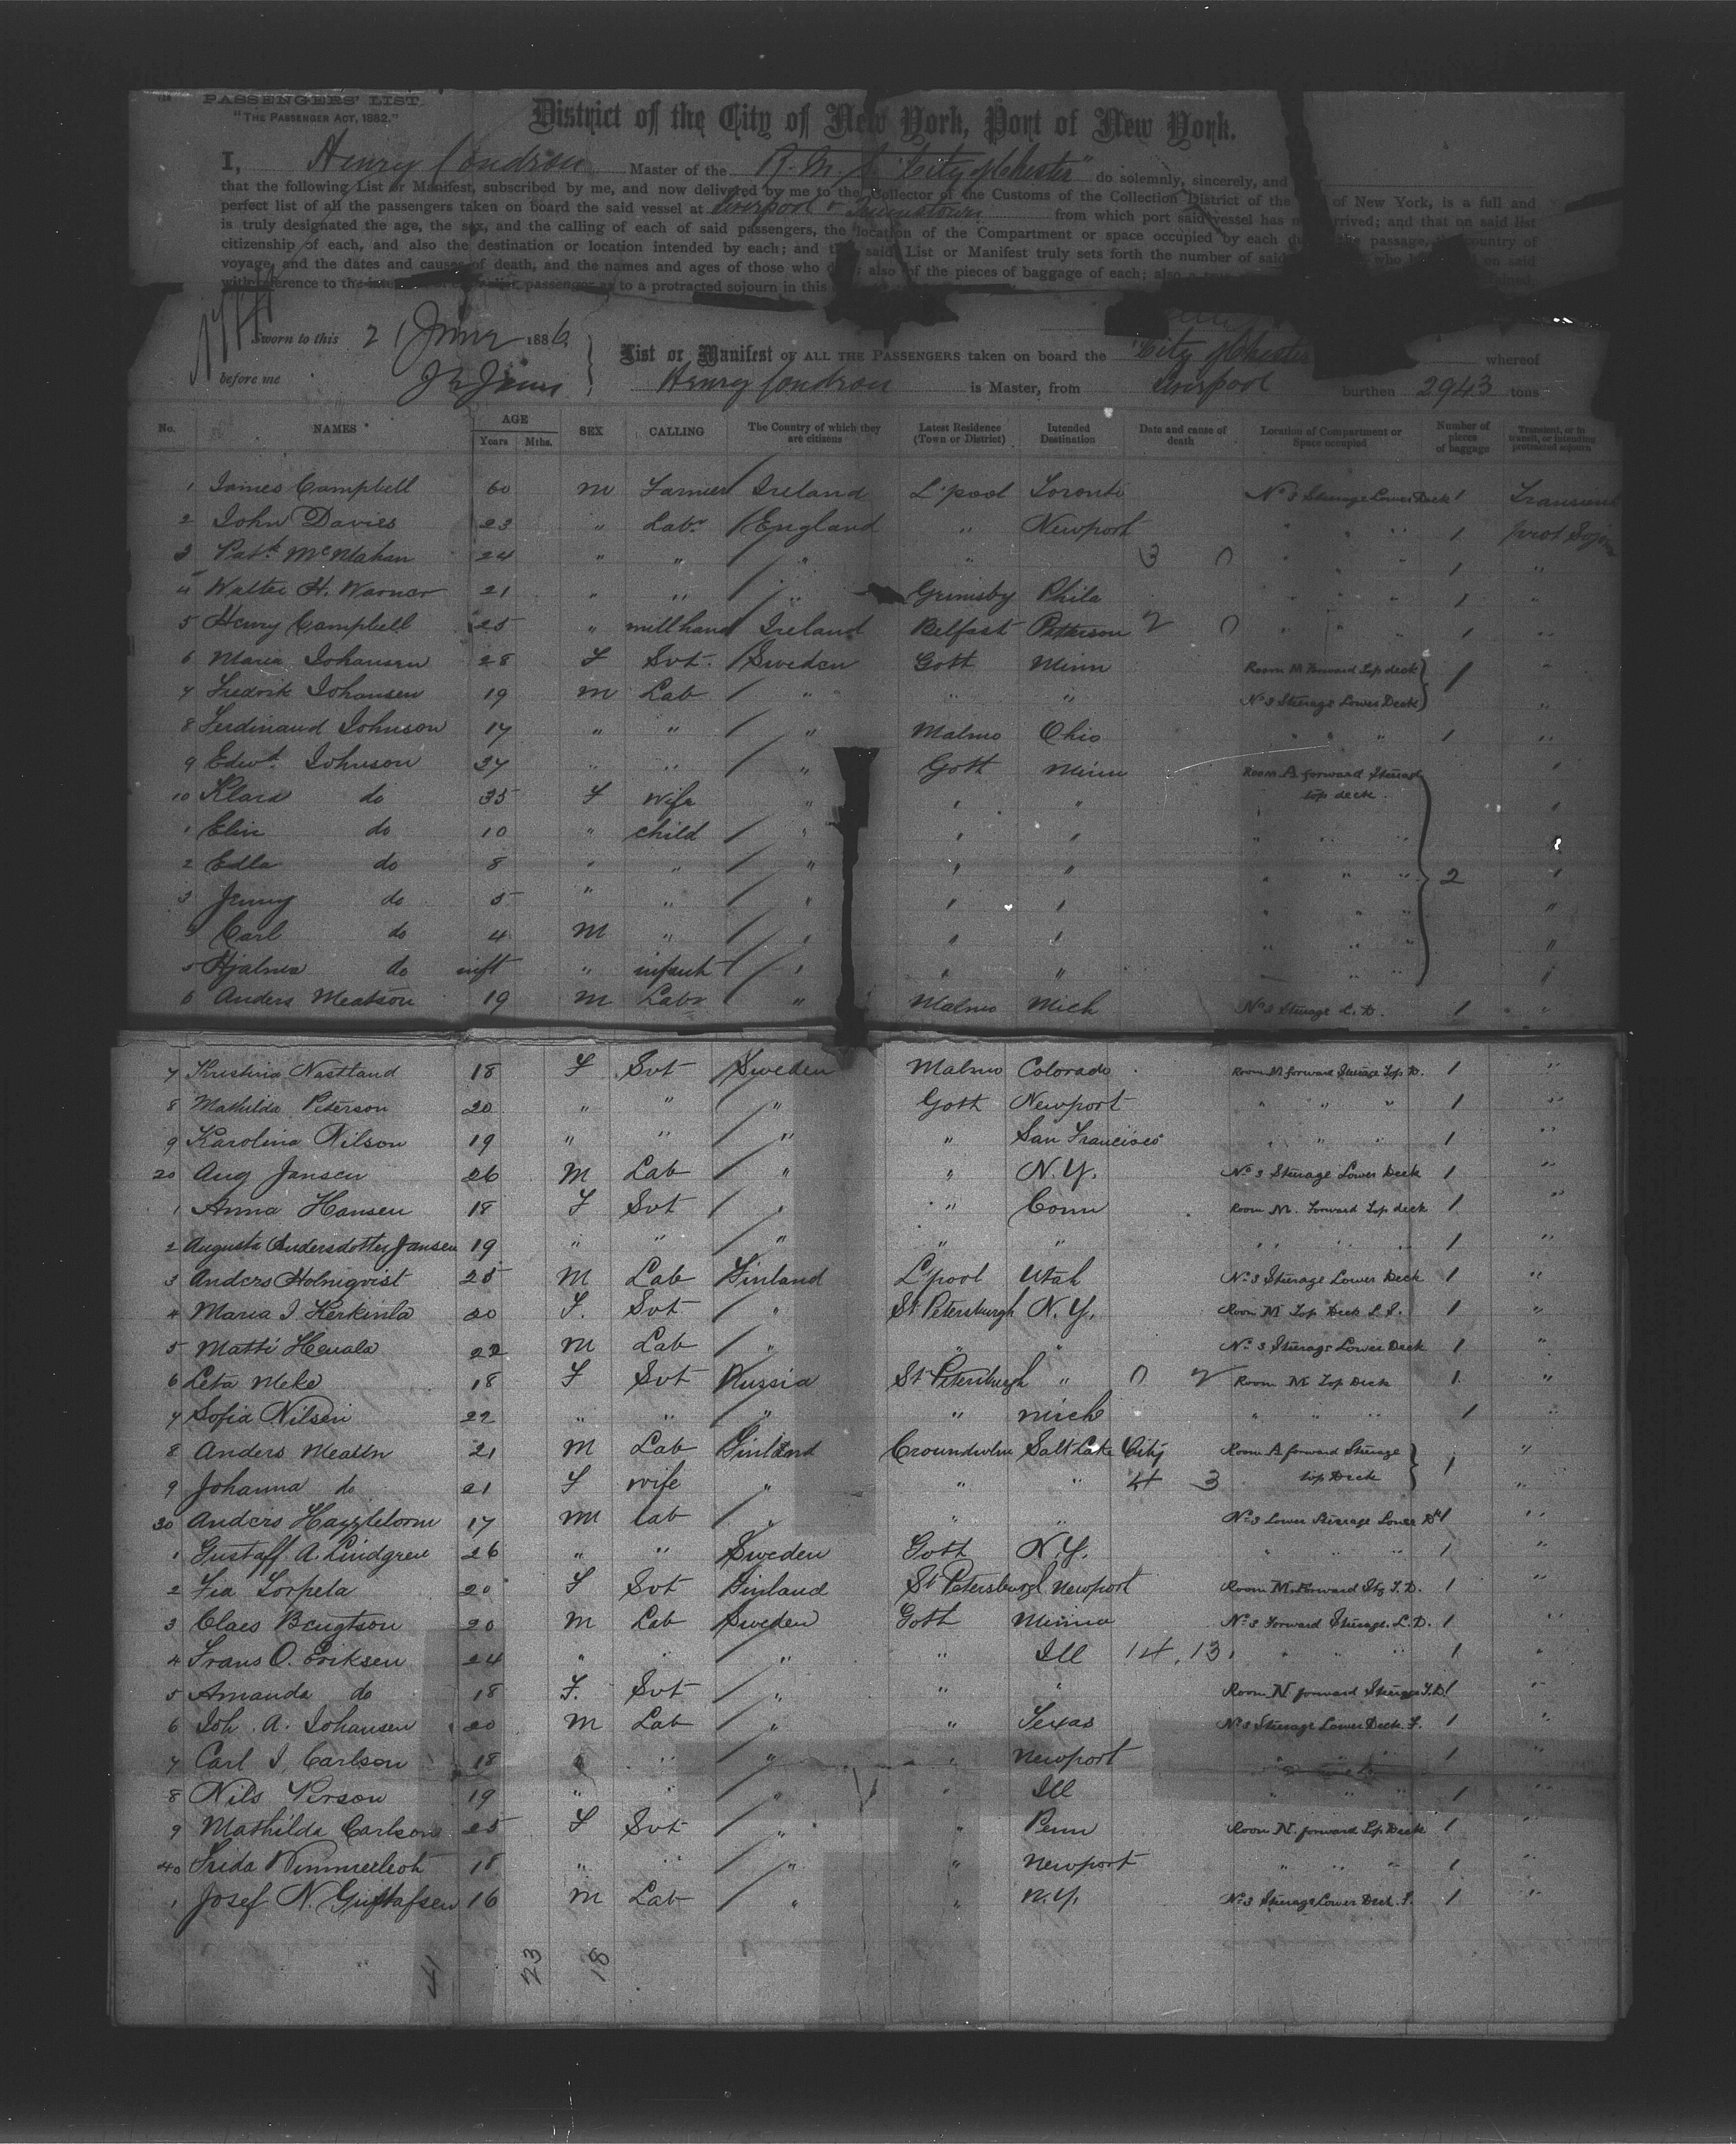 PASSENGERS' LIST.
"THE PASSENGER ACT, 1882."
District of the City of New York, Port of New York.
I, Henry Condron Master of the R.M.S. "City of Chester" do solemnly, sincerely, and
that the following List or Manifest, subscribed by me, and now delivered by me to the Collector of the Customs of the Collection District of the of New York, is a full and
perfect list of all the passengers taken on board the said vessel at Liverpool & Queenstown from which port said vessel has arrived; and that on said list
is truly designated the age, the sex, and the calling of each of said passengers, the location of the Compartment or space occupied by each the passage, country of
citizenship of each, and also the destination or location intended by each; and said List or Manifest truly sets forth the number of said who on said
voyage, and the dates and causes of death, and the names and ages of those who also of the pieces of baggage of each; also a true
with reference to the passenger as to a protracted sojourn in this
Sworn to this 21 June 1886.
before me
List or Manifest OF ALL THE PASSENGERS taken on board the "City of Chester whereof
Henry Condron is Master, from Liverpool burthen 2943 tons
No. NAMES AGE Years Mths. SEX CALLING The Country of which they are citizens Latest Residence (Town or District) Intended Destination Date and cause of death Location of Compartment or Space occupied Number of pieces of baggage Transient, or in transit, or intending protracted sojourn
1 James Campbell 60 M Farmer Ireland L'pool Toronto No 3 Steerage Lower Deck 1 Transient
2 John Davies 23 " Labr England " Newport " " " 1 prot Sojn
3 Patk McMahan 24 " " " " 3 0 " " " 1 "
4 Walter H. Warner 21 " " " Grimsby Phila " " " 1 "
5 Henry Campbell 25 " millhand Ireland Belfast Patterson 2 0 " " " 1 "
6 Maria Johansen 28 F Svt. Sweden Gott Minn Room M Forward Top deck 1 "
7 Fredrik Johansen 19 M Lab " " " No 3 Steerage Lower Deck "
8 Ferdinand Johnson 17 " " " Malmo Ohio " " " 1 "
9 Edwd. Johnson 37 " " " Gott Minn Room A forward Steerage "
10 Klara do 35 F wife " " " top deck. "
1 Elin do 10 " child " " " " " "
2 Edla do 8 " " " " " " " " 2 "
3 Jenny do 5 " " " " " " " " "
Carl do 4 M " " " " " " " "
5 Hjalmer do inft " infant " " " " " " "
6 Anders Meatson 19 M Labr " Malmo Mich No 3 Steerage L.D. 1 "
7 Kristina Nastland 18 F Svt Sweden Malmo Colorado Room M forward Steerage Top D. 1 "
8 Mathilda Peterson 20 " " " Goth Newport " " " 1 "
9 Karolina Nilson 19 " " " " San Francisco " " " 1 "
20 Aug Jansen 26 M Lab " " N.Y. No 3 Steerage Lower Deck 1 "
1 Anna Hansen 18 F Svt " " Conn Room M. Forward Top deck 1 "
2 Augusta Andersdotter Jansen 19 " " " " " " " " 1 "
3 Anders Holmqvist 25 M Lab Finland L'pool Utah No 3 Steerage Lower Deck 1 "
4 Maria J. Kerkinla 20 F. Svt " St Petersburgh N.Y. Room M Top Deck L.S. 1 "
5 Matti Heuala 22 M Lab " " " No 3 Steerage Lower Deck 1 "
6 Leta Meke 18 F Svt Russia St Petersburgh " 0 2 Room M Top Deck 1 "
7 Sofia Nilsen 22 " " " " Mich " " " 1 "
8 Anders Meatln 21 M Lab Finland Croundwlm Salt Lake City Room A forward Steerage 1 "
9 Johanna do 21 F wife " " " 4 3 top Deck "
30 Anders Hayytelorm 17 M lab " " " No 3 Lower Steerage Lower Dk 1 "
1 Gustaff A. Lindgren 26 " " Sweden Goth N.Y. " " " 1 "
2 Fia Lorpela 20 F Svt Finland St Petersburgh Newport Room M. Forward Stg T.D. 1 "
3 Claes Bengtson 20 M Lab Sweden Goth Minna No 3 Forward Steerage. L.D. 1 "
4 Frans O. Eriksen 24 " " " " Ill 14. 13. " " " 1 "
5 Amanda do 18 F. Svt " " " Room N forward Steerage T.D. 1 "
6 Joh. A. Johansen 20 M Lab " " Texas No 3 Steerage Lower Deck. F. 1 "
7 Carl J. Carlson 18 " " " " Newport " " " 1 "
8 Nils Person 19 " " " " Ill " " " 1 "
9 Mathilda Carlson 25 F Svt " " Penn Room N. forward Top Deck 1 "
40 Frida Wimmerleoh 18 " " " " Newport " " " 1 "
1 Josef N. Gustafsen 16 M Lab " " N.Y. No 3 Steerage Lower Deck. F. 1 "
41 23 18